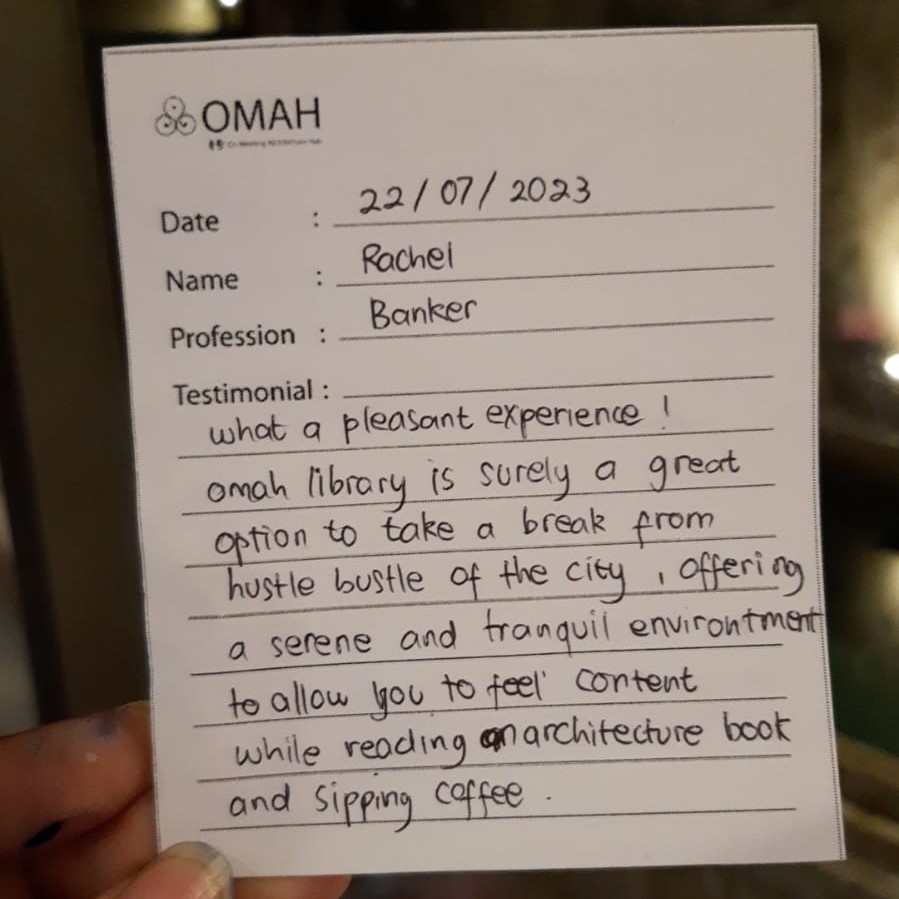 OMAH
Date : 22/07/2023
Name : Rachel
Profession : Banker
Testimonial :
what a pleasant experience !
omah library is surely a great
option to take a break from
hustle bustle of the city , offering
a serene and tranquil environtment
to allow you to feel content
while reading an architecture book
and sipping coffee .